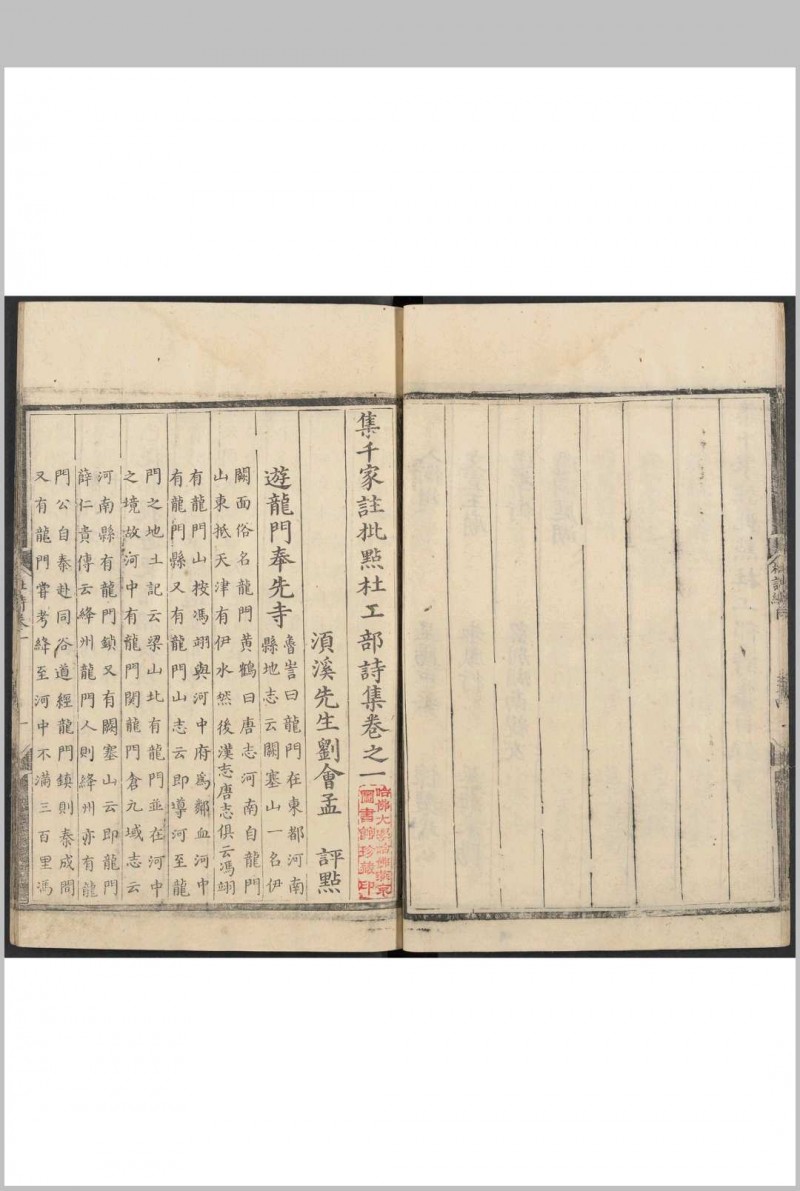 集千家註批點杜工部詩集卷之一
須溪先生劉會孟 評點
遊龍門奉先寺
魯訔曰龍門在東都河南
縣地志云闕塞山一名伊
闕面俗名龍門黃鶴曰唐志河南自龍門
山東抵天津有伊水然後漢志唐志俱云馮翊
有龍門山按馮翊與河中府為鄰血河中
有龍門縣又有龍門山志云即導河至龍
門之地土記云梁山北有龍門並在河中
之境故河中有龍門関龍門倉九域志云
河南縣有龍門鎮又有闕塞山云即龍門
薛仁貴傳云絳州龍門人則絳州亦有龍
門公自秦赴同谷道經龍門鎮則秦成間
又有龍門嘗考絳至河中不滿三百里馮
杜詩卷一
一
哈佛大學哈佛燕京
圖書館珍藏印